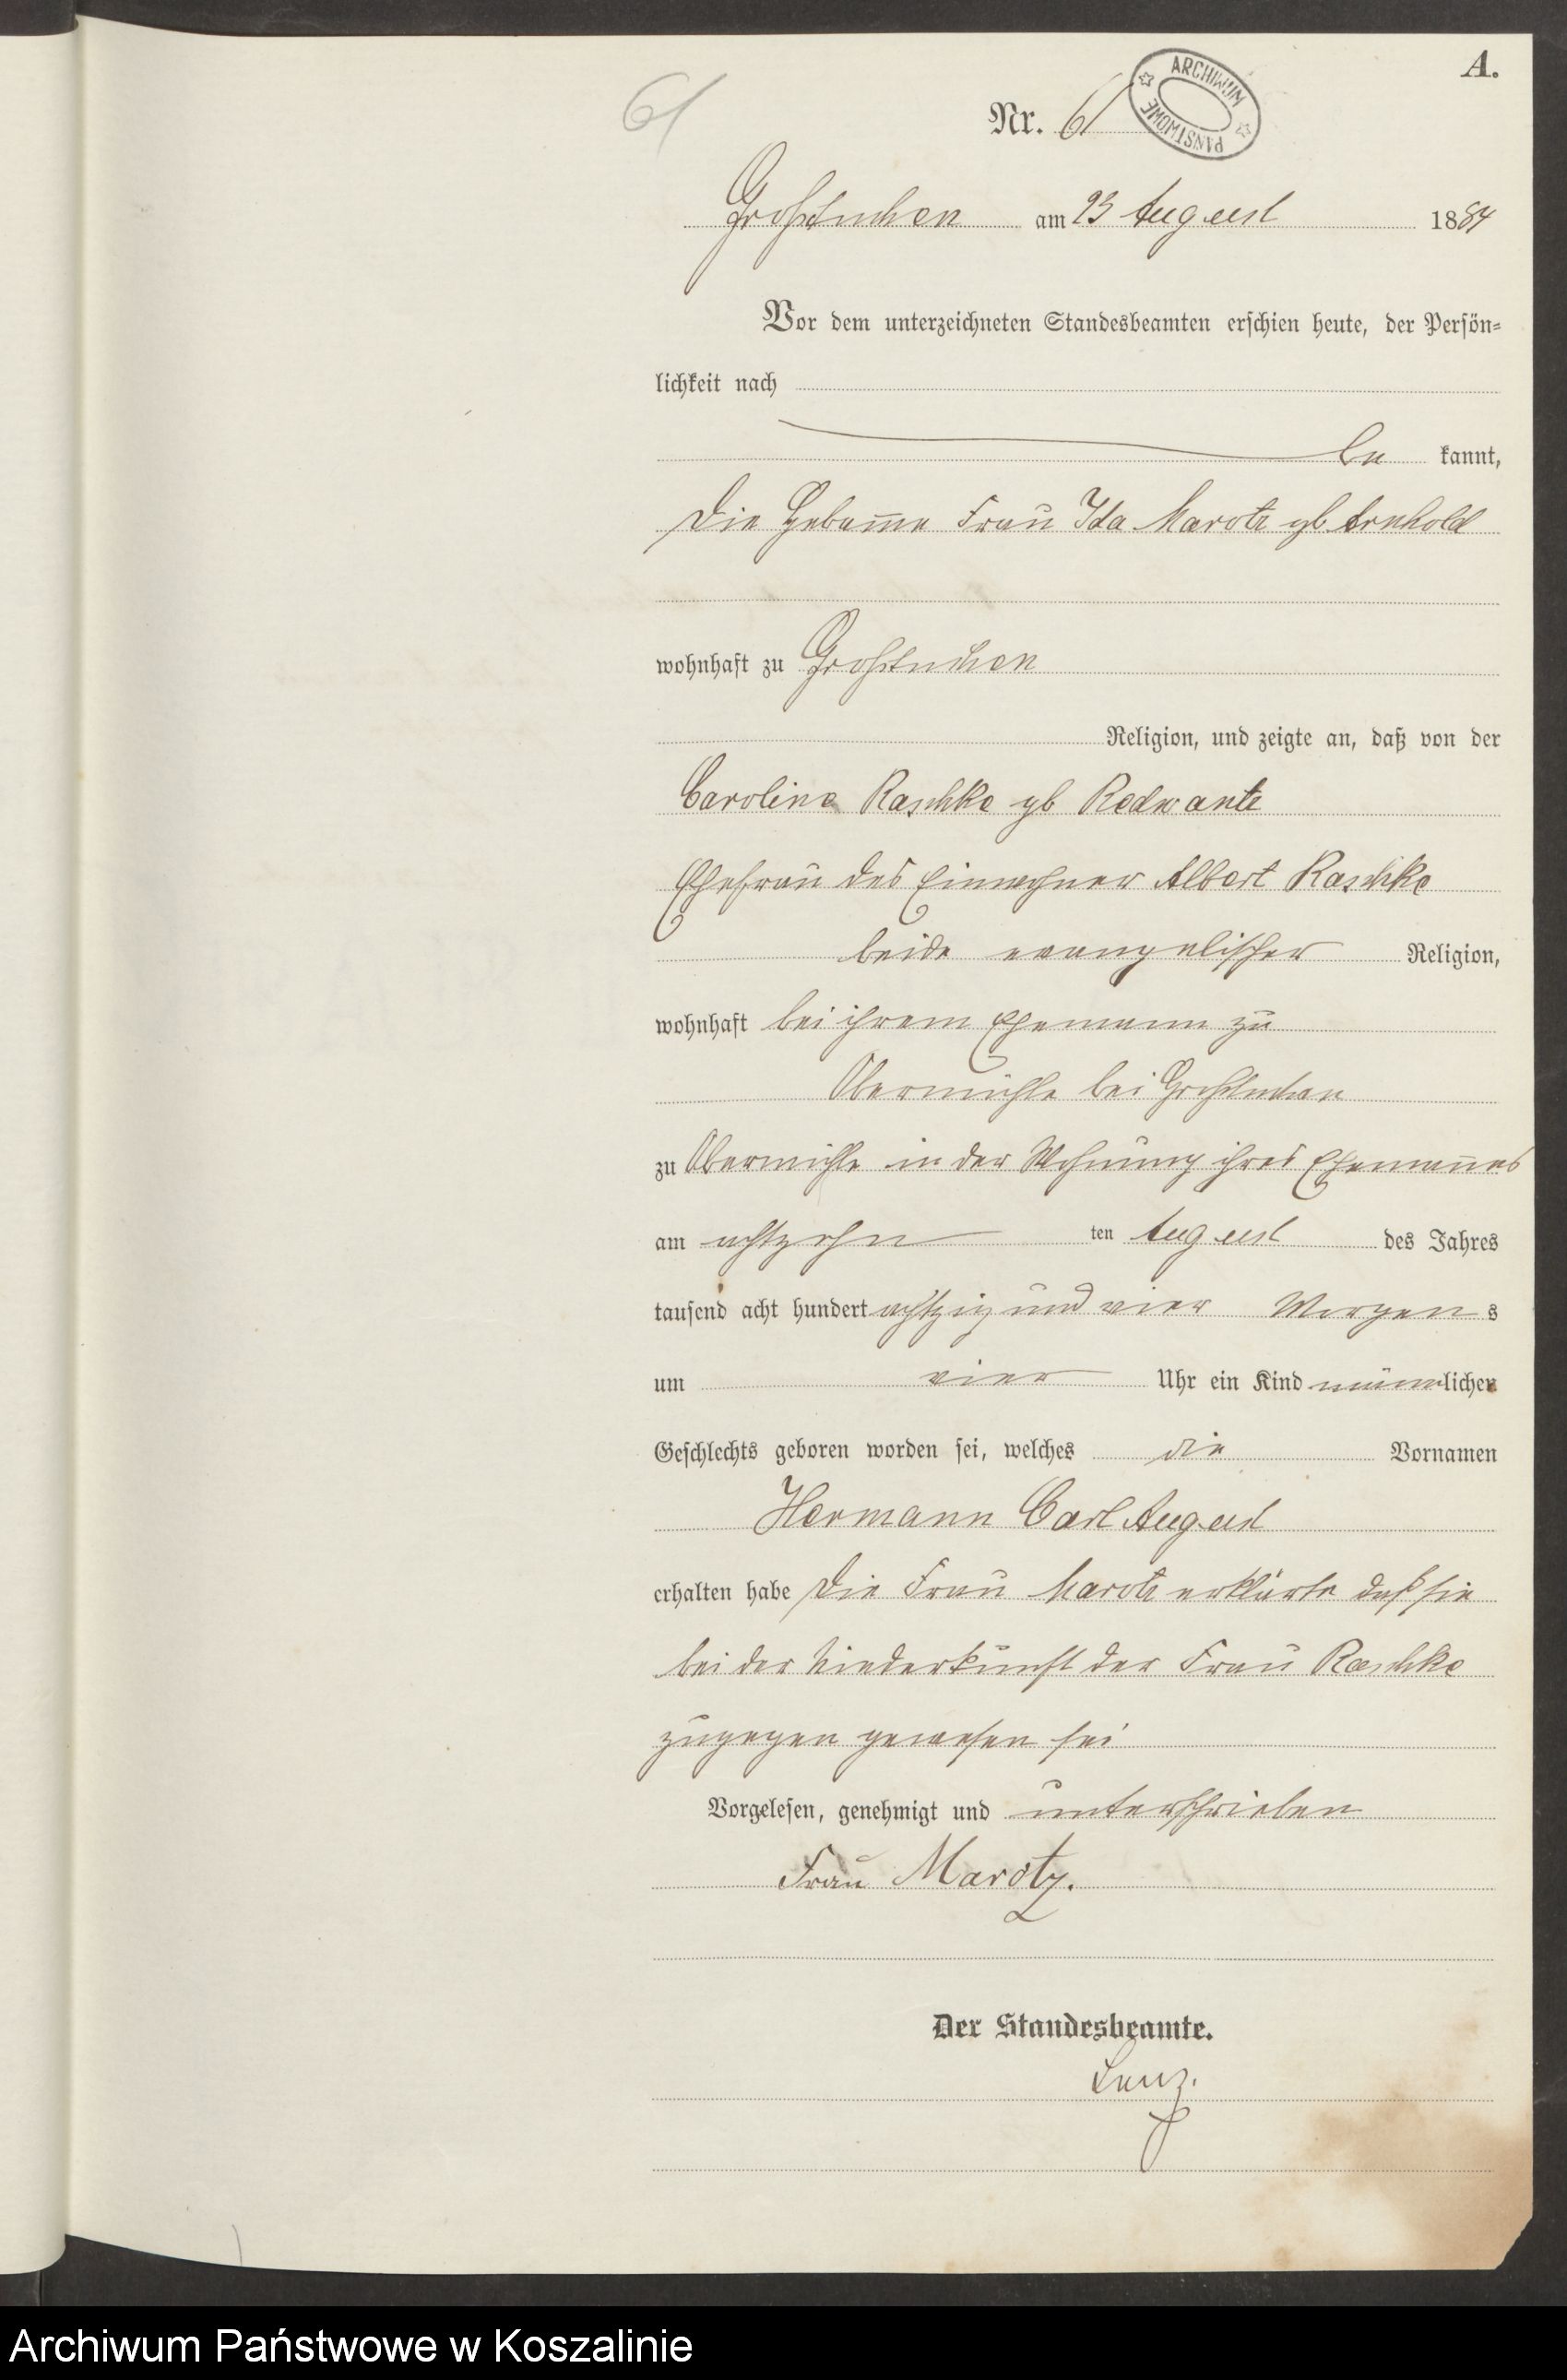 A.
61
Nr. 61
ARCHIWUM PAŃSTWOWE
Großtuchen am 23 August 1884
Vor dem unterzeichneten Standesbeamten erschien heute, der Persön-
lichkeit nach
be kannt,
die Hebamme Frau Ida Marotz gb Arnhold
wohnhaft zu Großtuchen
Religion, und zeigte an, daß von der
Caroline Raschke gb Redwante
Ehefrau des Einwohner Albert Raschke
beide evangelischer Religion,
wohnhaft bei ihrem Ehemann zu
Obermühle bei Großtuchen
zu Obermühle in der Wohnung ihres Ehemannes
am achtzehn ten August des Jahres
tausend acht hundert achtzig und vier Morgens
um vier Uhr ein Kind männlichen
Geschlechts geboren worden sei, welches die Vornamen
Hermann Carl August
erhalten habe die Frau Marotz erklärte daß sie
bei der Niederkunft der Frau Raschke
zugegen gewesen sei
Vorgelesen, genehmigt und unterschrieben
Frau Marotz.
Der Standesbeamte.
Lenz.
Archiwum Państwowe w Koszalinie